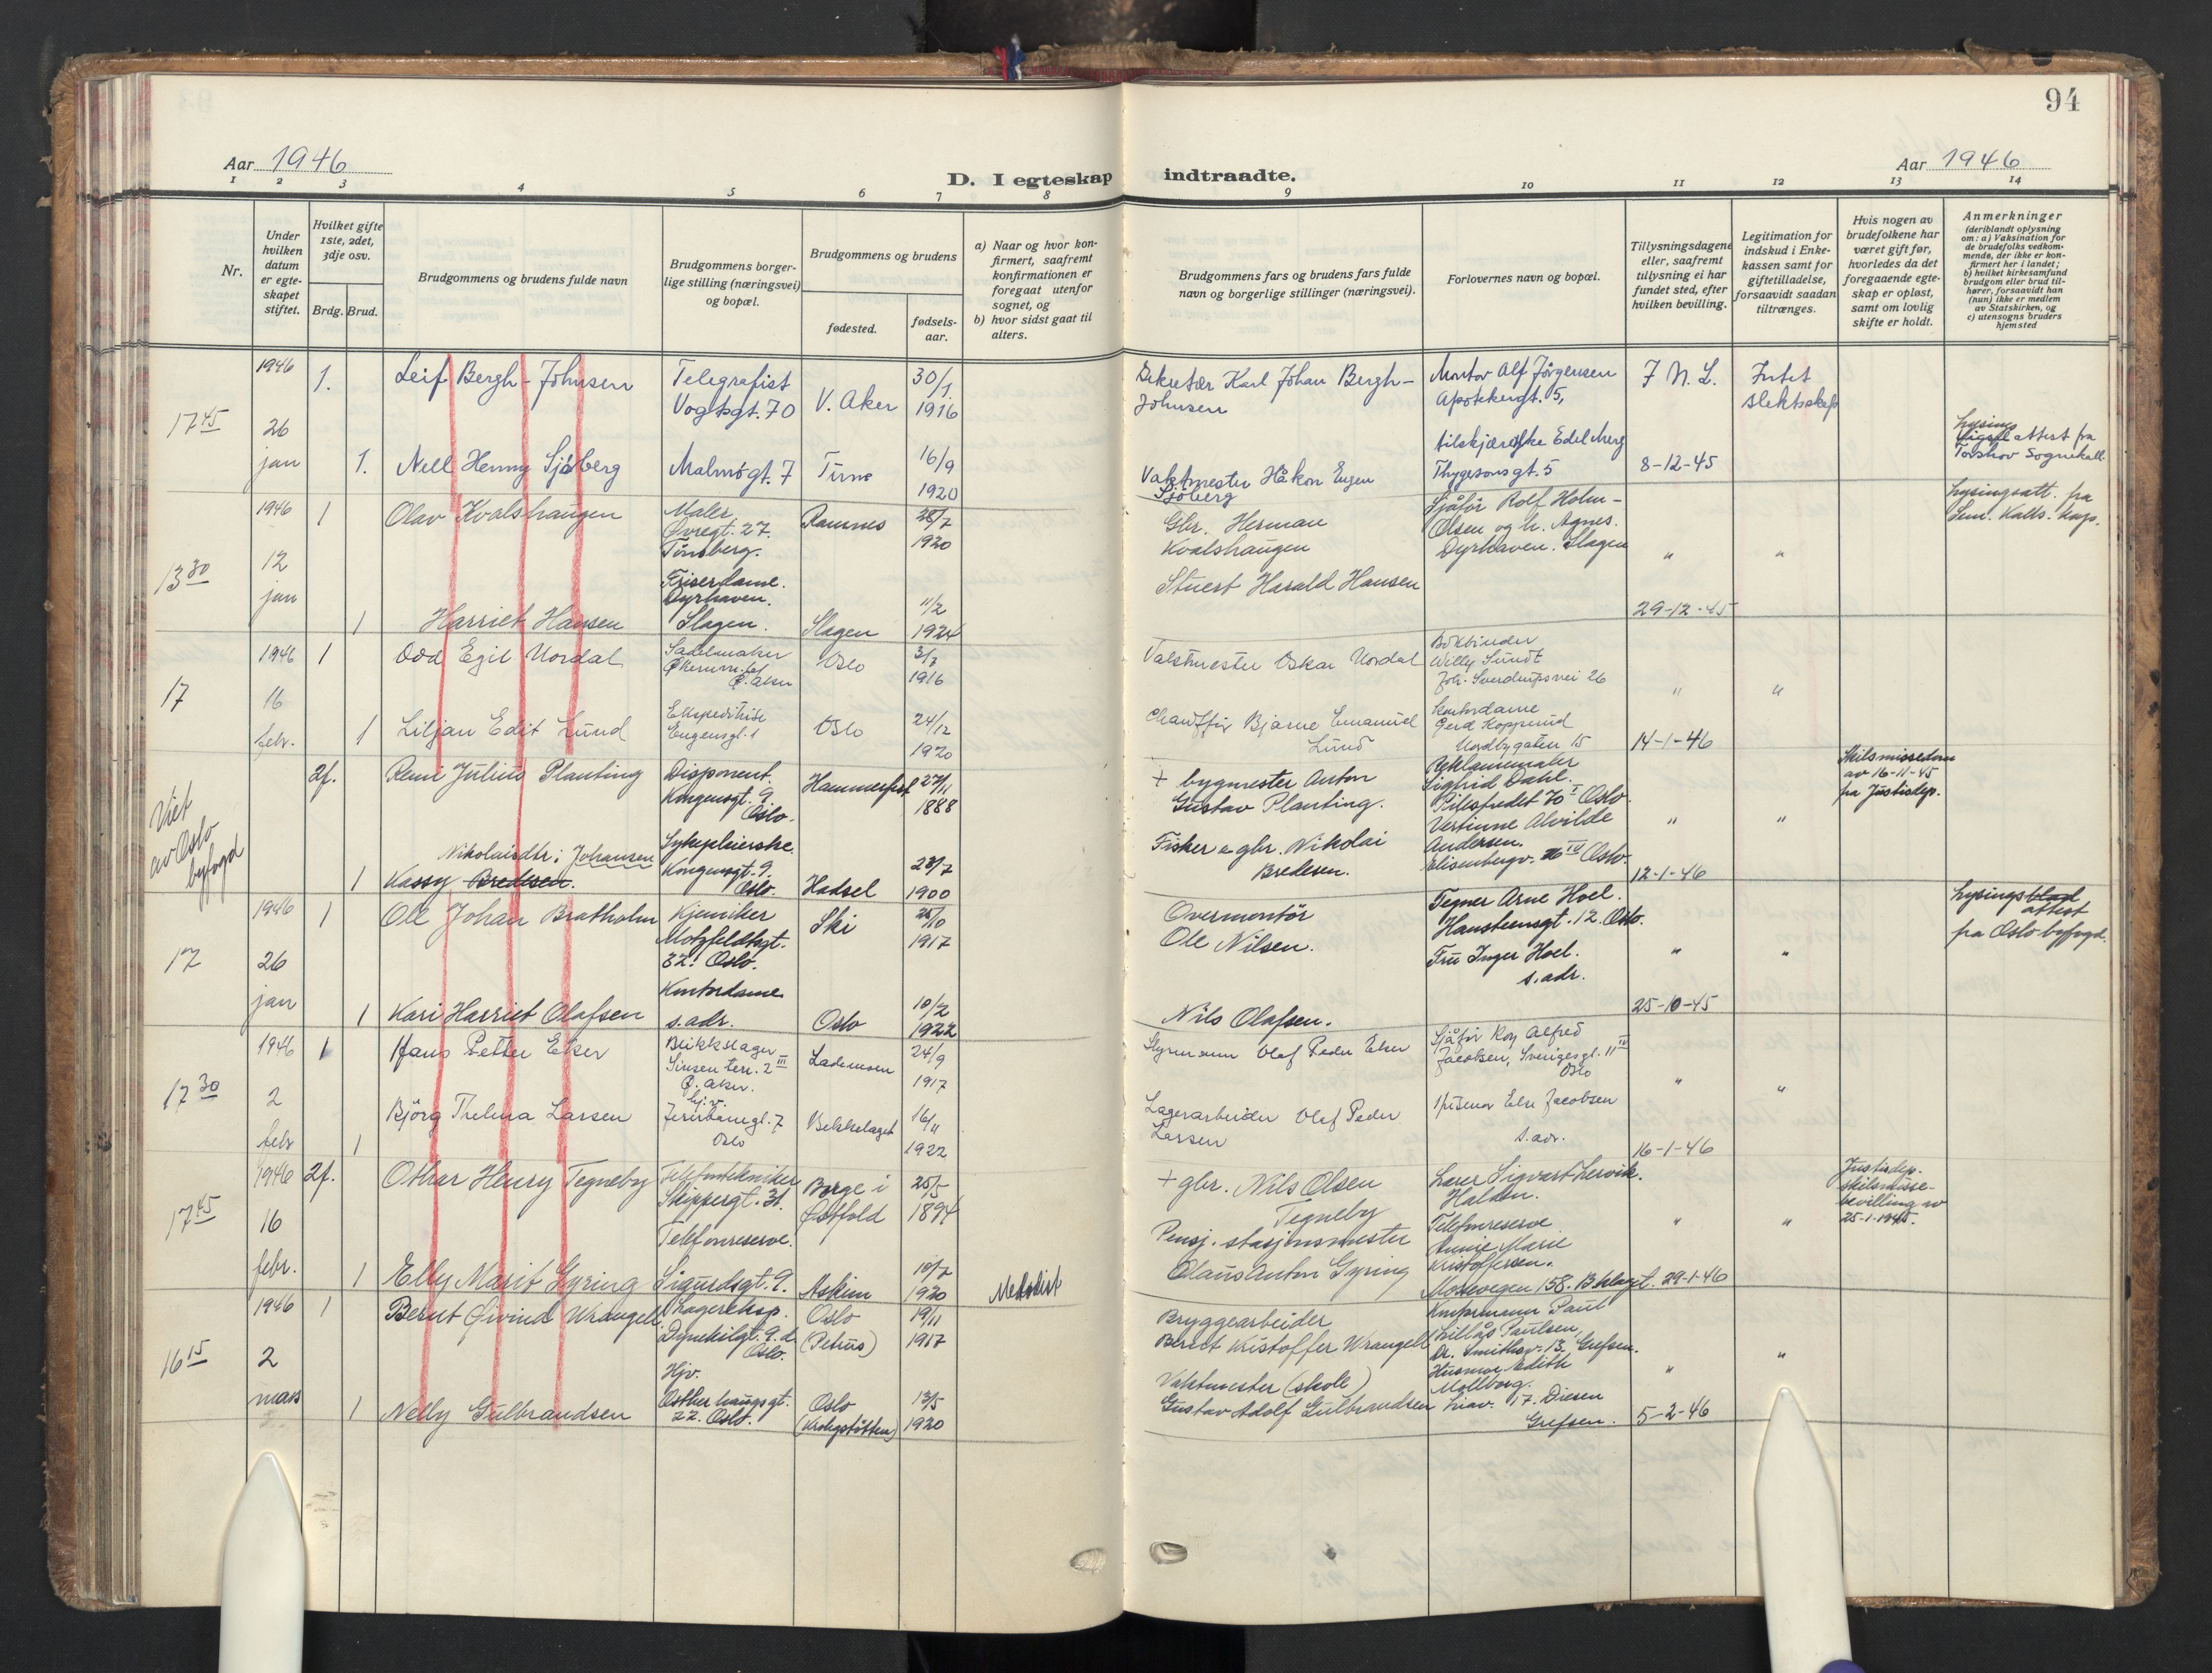 94
Aar 1946
D. I egteskap indtraadte.
Aar 1946
1 2 3 4 5 6 7 8 9 10 11 12 13 14
Nr.
Under hvilken datum er egteskapet stiftet.
Hvilket gifte 1ste, 2det, 3dje osv.
Brdg. Brud.
Brudgommens og brudens fulde navn
Brudgommens borgerlige stilling (næringsvei) og bopæl.
Brudgommens og brudens
fødested.
fødselsaar.
a) Naar og hvor konfirmert, saafremt konfirmationen er foregaat utenfor sognet, og
b) hvor sidst gaat til alters.
Brudgommens fars og brudens fars fulde navn og borgerlige stillinger (næringsvei).
Forlovernes navn og bopæl.
Tillysningsdagene eller, saafremt tillysning ei har fundet sted, efter hvilken bevilling.
Legitimation for indskud i Enkekassen samt for giftetilladelse, forsaavidt saadan tiltrænges.
Hvis nogen av brudefolkene har været gift før, hvorledes da det foregaaende egteskap er opløst, samt om lovlig skifte er holdt.
Anmerkninger (deriblandt oplysning om: a) Vaksination for de brudefolks vedkommende, der ikke er konfirmert her i landet; b) hvilket kirkesamfund brudgom eller brud tilhører, forsaavidt han (hun) ikke er medlem av Statskirken, og c) utensogns bruders hjemsted
17 45
1946 26 jan
1. Leif Bergh-Johnsen
Telegrafist Vogtsgt. 70
V. Aker
30/1. 1916
Sekretær Karl Johan Bergh-Johnsen
Montør Alf Jörgensen Apotekergt. 5,
7 N. L.
Intet slektskap
1. Nell Henny Sjöberg
Malmögt. 7
16/9 1920
Vaktmester Håkon Eugen Sjöberg
Thygesonsgt. 5
8-12-45
Lysingsattest fra Torshov Sognekall
13 30
1946 12 jan
1 Olav Kvalshaugen
Maler Øvregt. 27. Tönsberg.
Ramnes
28/7 1920
Gbr. Herman Kvalshaugen
Sjåför Rolf Holm-Olsen og h. Agnes. Dyrhaven. Slagen
" "
Lysingsatt. fra Sem. Kalls. kap.
1 Harriet Hansen
Friserdame. Dyrhaven. Slagen.
Slagen
11/2 1924
Stuert Harald Hansen
29-12-45
17
1946 16 febr.
1 Odd Egil Nordal
Sadelmaker
Ø. Aker
Oslo
3/7 1916
Valsmester Oskar Nordal
Bokbinder Willy Sundt Joh. Sverdrupsvei 26
" "
1 Liljan Edit Lund
Ekspeditrise Eugensgt. 1
Oslo
24/12 1920
Chaufför Bjarne Emanuel Lund
Kontordame Gerd Kopperud Nordbygaten 15
14-1-46
Viet av Oslo byfogd
2f. Remi Julius Planting
Disponent. Kongensgt. 9 Oslo.
Hammerfest
27/11 1888
+ bygmester Anton Gustav Planting.
Reklamemaler Sigfrid Dahl. Pilestredet 70 I Oslo.
" "
Skilsmissedom av 16-11-45 fra Justisdep.
Nikolaisdtr; Johansen
1 Kassy Bredesen.
Sykepleierske. Kongensgt. 9. Oslo.
Hadsel
23/7 1900
Fisker & gbr. Nikolai Bredesen.
Vertinne Alvilde Andersen. Elisenbergv. IV Oslo.
12-1-46
17
1946 26 jan
1 Ole Johan Bratholm
Kjemiker Motzfeldtsgt. 32. Oslo.
Ski
25/10 1917
Overmontör Ole Nilsen.
Tegner Arne Hoel. Hansteensgt. 12. Oslo.
" "
Lysingsblad attest fra Oslo byfogd.
1 Kari Harriet Olafsen
Kontordame s. adr.
Oslo
10/2 1922
Nils Olafsen.
Fru Inger Hoel. s. adr.
25-10-45
17 30
1946 2 febr
1 Hans Petter Eker
Blikkslager Sinsen terr. 2 III Ø. Aker.
Lademoen
24/9 1917
Styrmann Olaf Peder Eker
Sjåför Roy Alfred Jacobsen, Sverigesgt. 11 IV Oslo
" "
1 Björg Thelma Larsen
hj.v. Jernbanegt. 7 Oslo
Bekkelaget
16/11 1922
Lagerarbeider Olaf Peder Larsen
Husmor Else Jacobsen s. adr.
16-1-46
17 45
1946 16 febr.
2f. Othar Henry Tegneby
Telefontekniker Skippergt. 31.
Borge i Østfold
25/5 1894
+ gbr. Nils Olsen Tegneby
Lærer Sigvart Lervik. Halden.
" "
Justisdep. skilsmissebevilling av 25-1-1945.
1 Elly Marit Gyring
Telefonreserve. Sigurdsgt. 9.
Askim
10/7 1920
Metodist
Pensj. stasjonsmester Olaus Anton Gyring
Telefonreserve Annie Marie Kristoffersen. Mossevegen 158. Bklagt.
29-1-46
16 15
1946 2 mars
1 Bernt Øivind Wrangell
Lagereksp. Dynekilgt. 9.d Oslo.
Oslo (Petrus)
19/11 1917
Bryggearbeider Berent Kristoffer Wrangell
Paul Paulsen, Dr. Smithsv. 13. Grefsen.
" "
1 Nelly Gulbrandsen
Hjv. Østherhausgt. 22. Oslo.
Oslo
13/5 1920
Vaktmester (skole) Gustav Adolf Gulbrandsen
Husmor Edith Mollberg. 17. Grefsen.
5-2-46